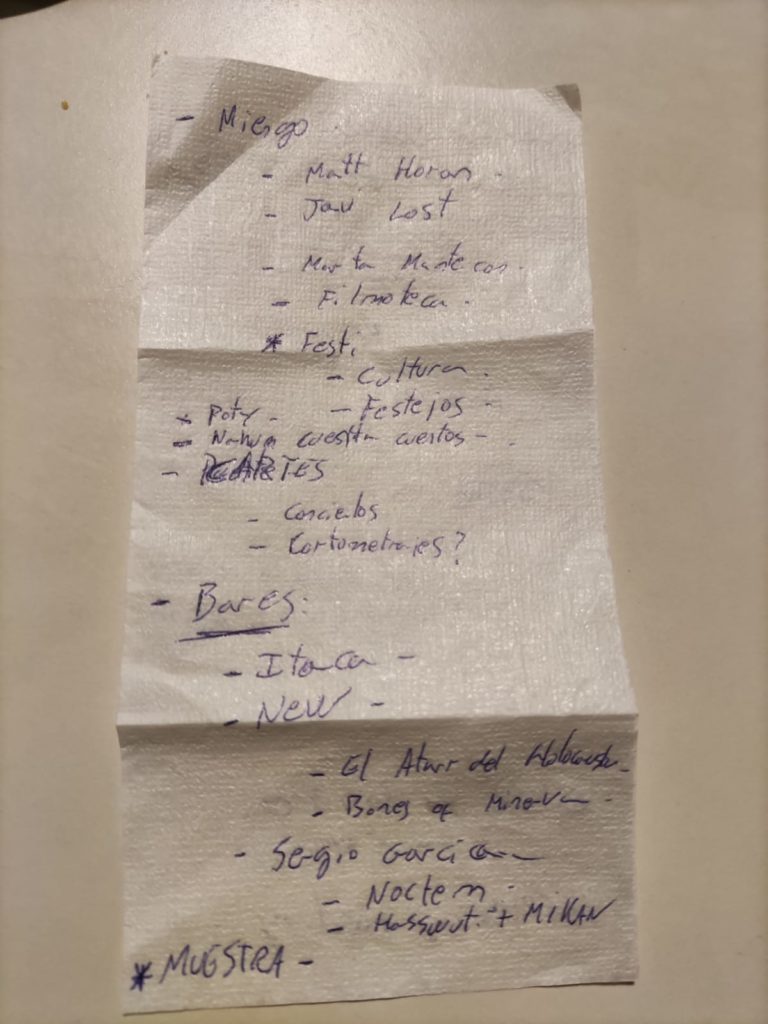 - Miedgo -
- Matt Horan -
- Javi Lost
- Marta Mantecon.
- Filmoteca -
* Festi
- Cultura -
- Festejos -
* Poty -
- cuenta cuentos -
- CARTES
- Conciertos
- Cortometrajes?
- Bares:
- Itaca -
- New -
- El Altar del Holocausto -
- Bones of Minerva -
- Sergio Garcia
- Noctem -
- Hasswut. + MIKAN
* MUESTRA -